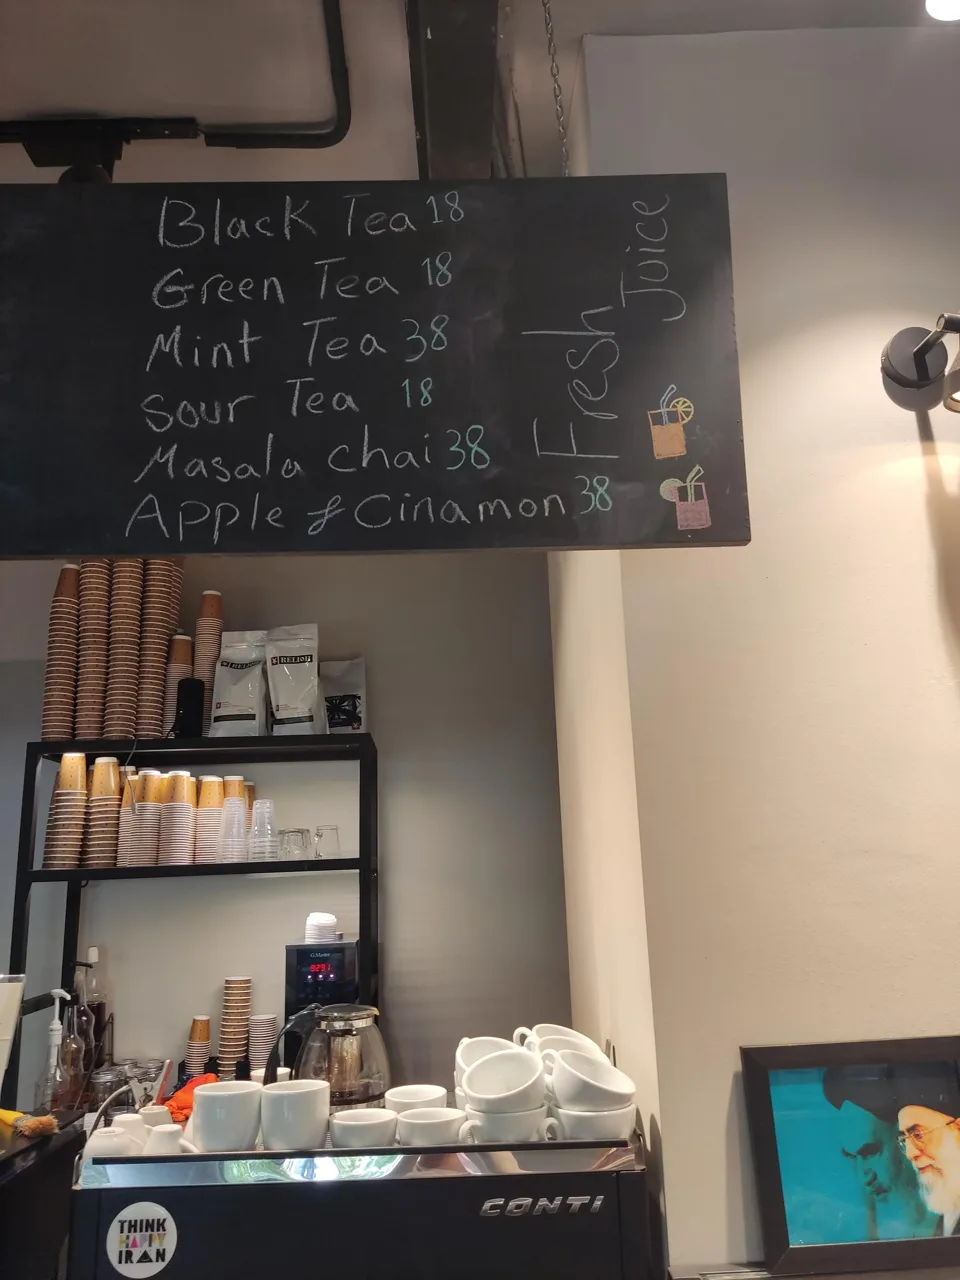 Black Tea 18
Green Tea 18
Mint Tea 38
Sour Tea 18
Masala chai 38
Apple & Cinamon 38
Fresh
Juice
RELIOH
RELIOH
G.Master
CONTI
THINK
HAPPY
IRAN